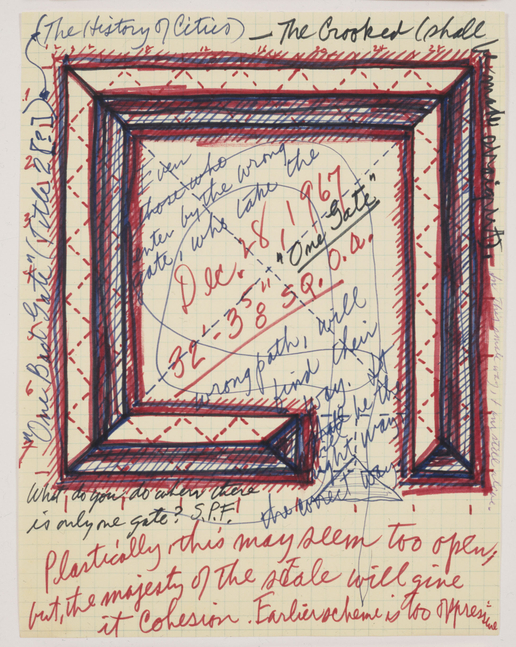 (The History of Cities) — The Crooked (shall
"One Bad Gate" (Title 2 [?])
Even
those who
enter by the wrong
gate, who take the
wrong path, will
find their
way. It
the
right way
the correct way
Dec. 28, 1967
"One Gate"
32' - 3 5/8" SQ. O.A.
What do you do when there
is only one gate? S.P.F.
Plastically, this may seem too open,
but, the majesty of the scale will give
it cohesion. Earlier scheme is too oppressive